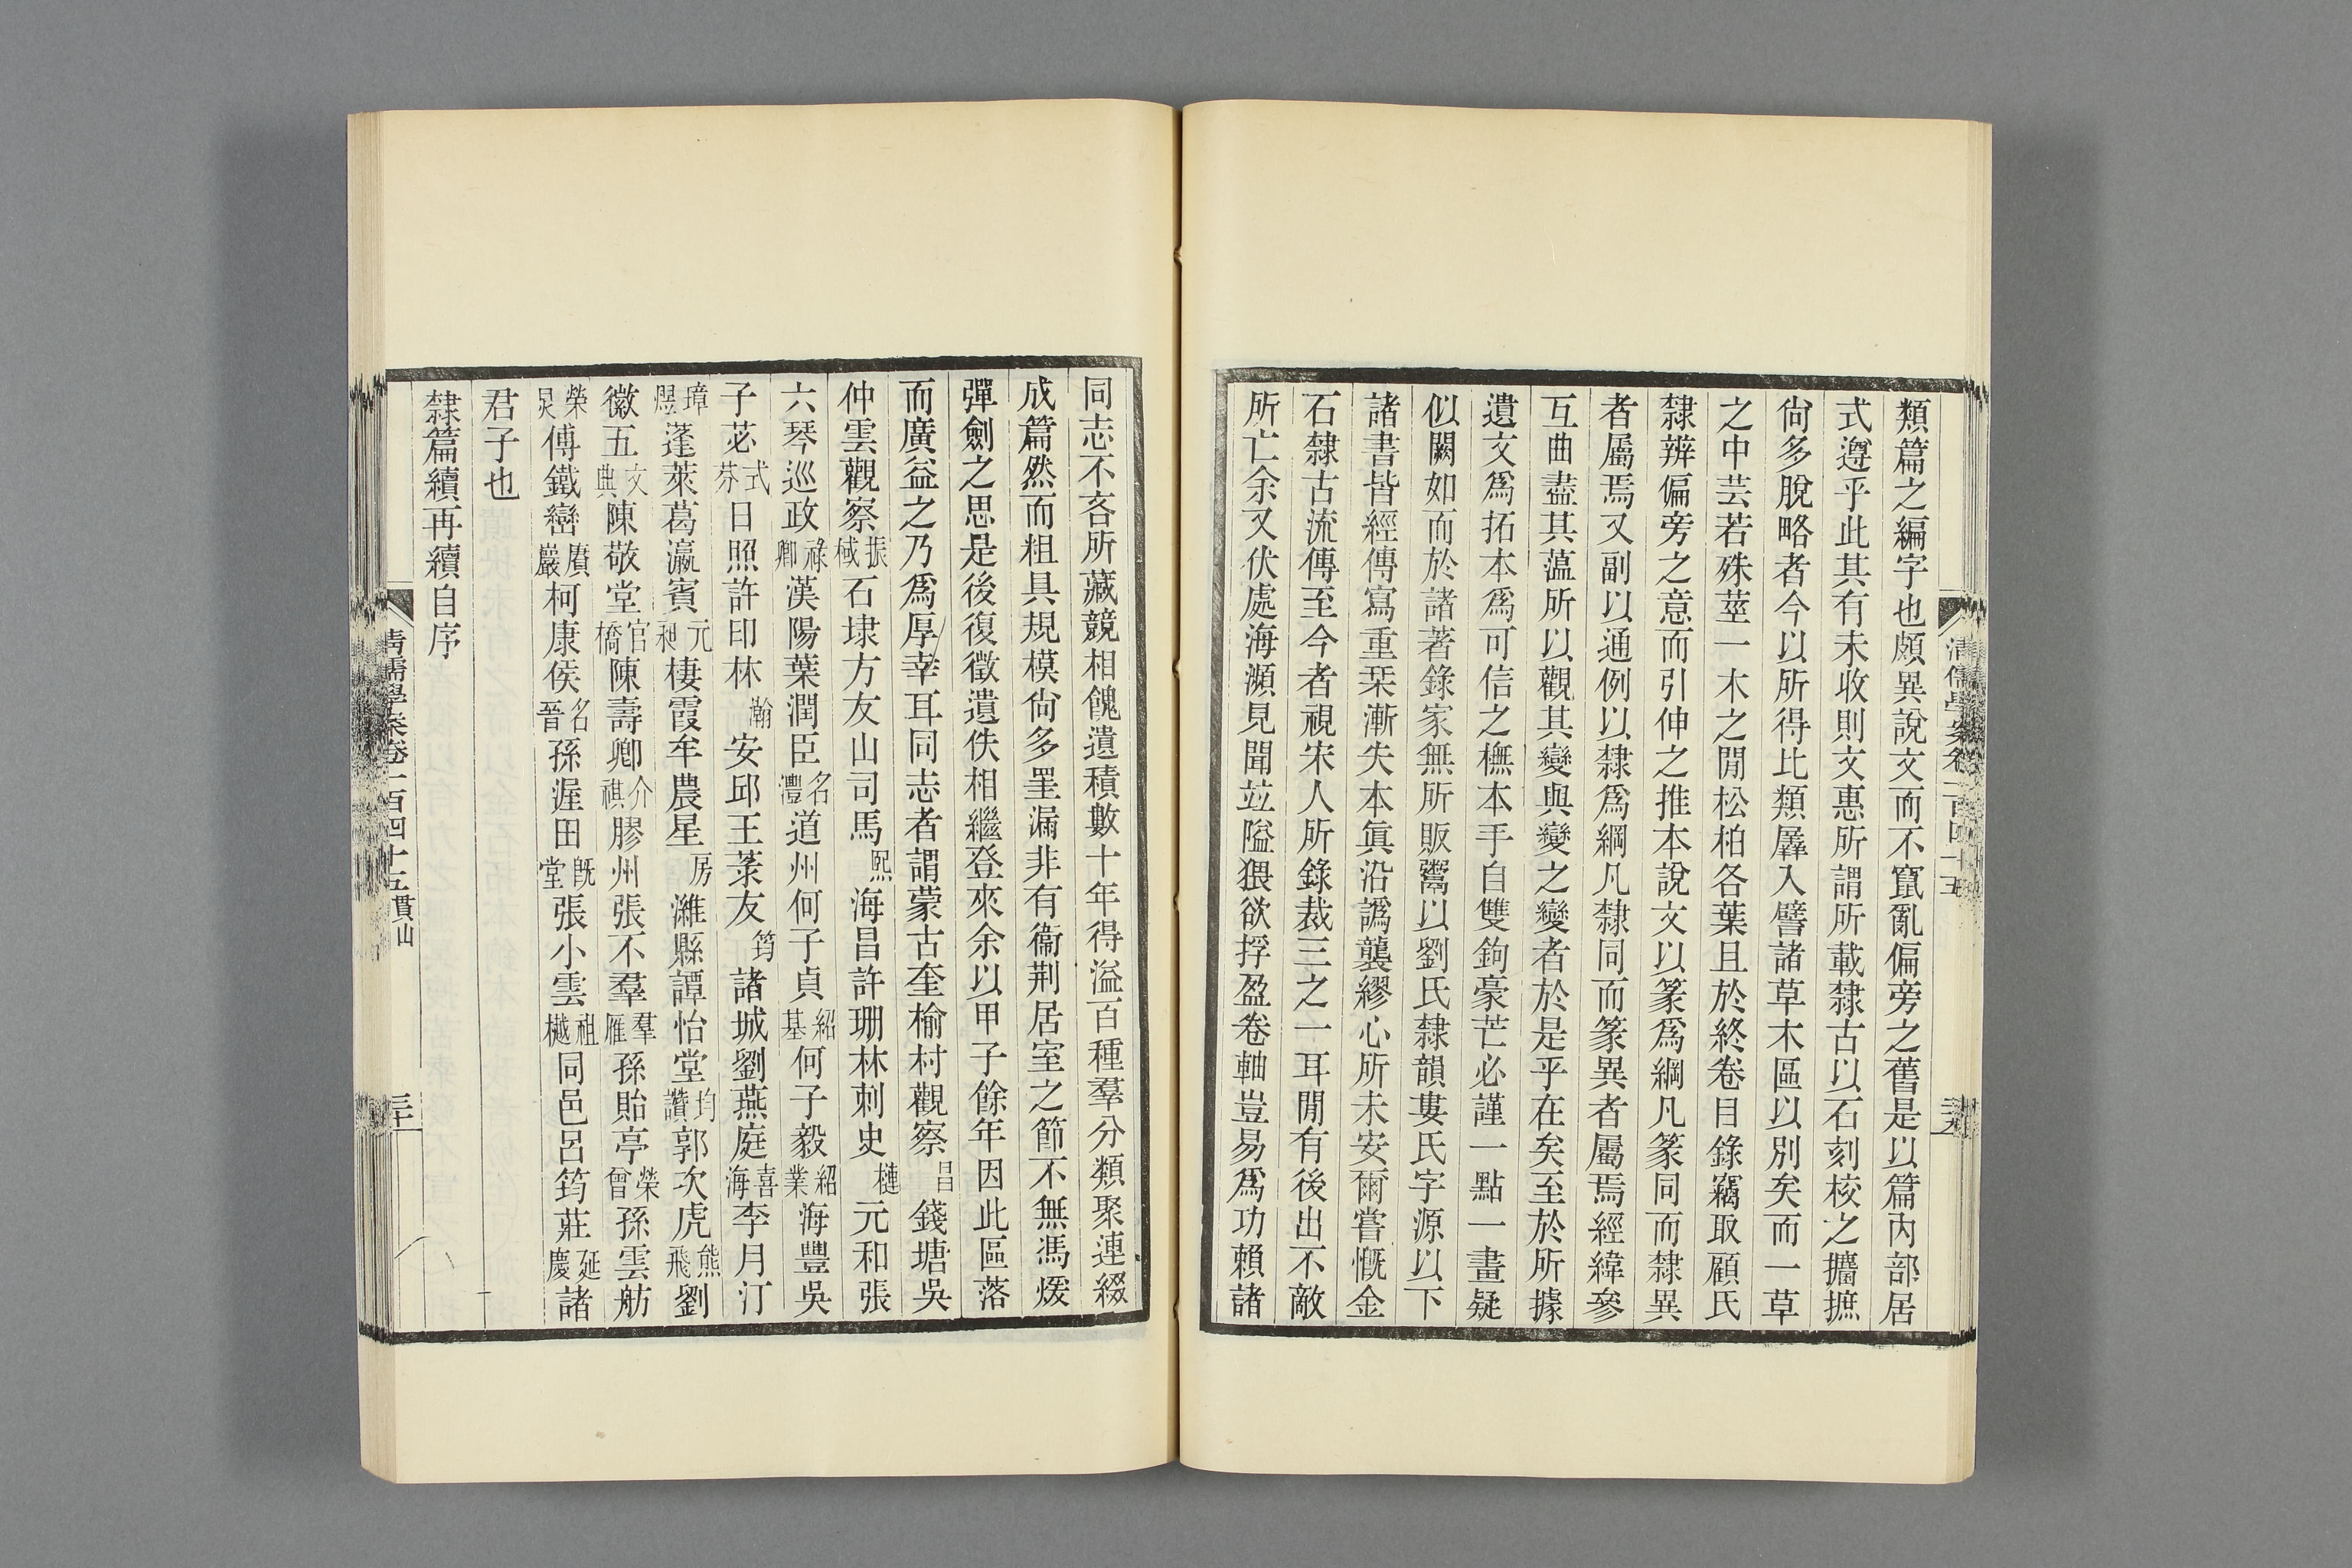 類篇之編字也頗異說文而不竄亂偏旁之舊是以篇內部居
式遵乎此其有未收則文惠所謂所載隸古以石刻校之攟摭
尙多脫略者今以所得比類羼入譬諸草木區以別矣而一草
之中芸若殊莖一木之閒松柏各葉且於終卷目錄竊取顧氏
隸辨偏旁之意而引伸之推本說文以篆爲綱凡篆同而隸異
者屬焉又副以通例以隸爲綱凡隸同而篆異者屬焉經緯參
互曲盡其薀所以觀其變與變之變者於是乎在矣至於所據
遺文爲拓本爲可信之橅本手自雙鉤豪芒必謹一點一畫疑
似闕如而於諸著錄家無所販鬻以劉氏隸韻婁氏字源以下
諸書皆經傳寫重栞漸失本眞沿譌襲繆心所未安爾嘗慨金
石隸古流傳至今者視宋人所錄裁三之一耳閒有後出不敵
所亡余又伏處海瀕見聞竝隘猥欲捊盈卷軸豈易爲功賴諸
清儒學案卷一百四十五
同志不吝所藏競相餽遺積數十年得溢百種羣分類聚連綴
成篇然而粗具規模尙多罣漏非有衞荆居室之節不無馮煖
彈劍之思是後復徵遺佚相繼登來余以甲子餘年因此區落
而廣益之乃爲厚幸耳同志者謂蒙古奎榆村觀察昌錢塘吳
仲雲觀察振棫石埭方友山司馬熙海昌許珊林刺史槤元和張
六琴巡政祿卿漢陽葉潤臣名灃道州何子貞紹基何子毅紹業海豐吳
子苾式芬日照許印林瀚安邱王菉友筠諸城劉燕庭喜海李月汀
璋煜蓬萊葛瀛賓元昶棲霞牟農星房濰縣譚怡堂均讚郭次虎熊飛劉
徽五文典陳敬堂官橋陳壽卿介祺膠州張不羣羣雁孫貽亭榮曾孫雲舫
榮炅傅鐵巒賡巖柯康侯名晉孫渥田旣堂張小雲祖樾同邑呂筠莊延慶諸
君子也
隸篇續再續自序
清儒學案卷一百四十五貫山
三十